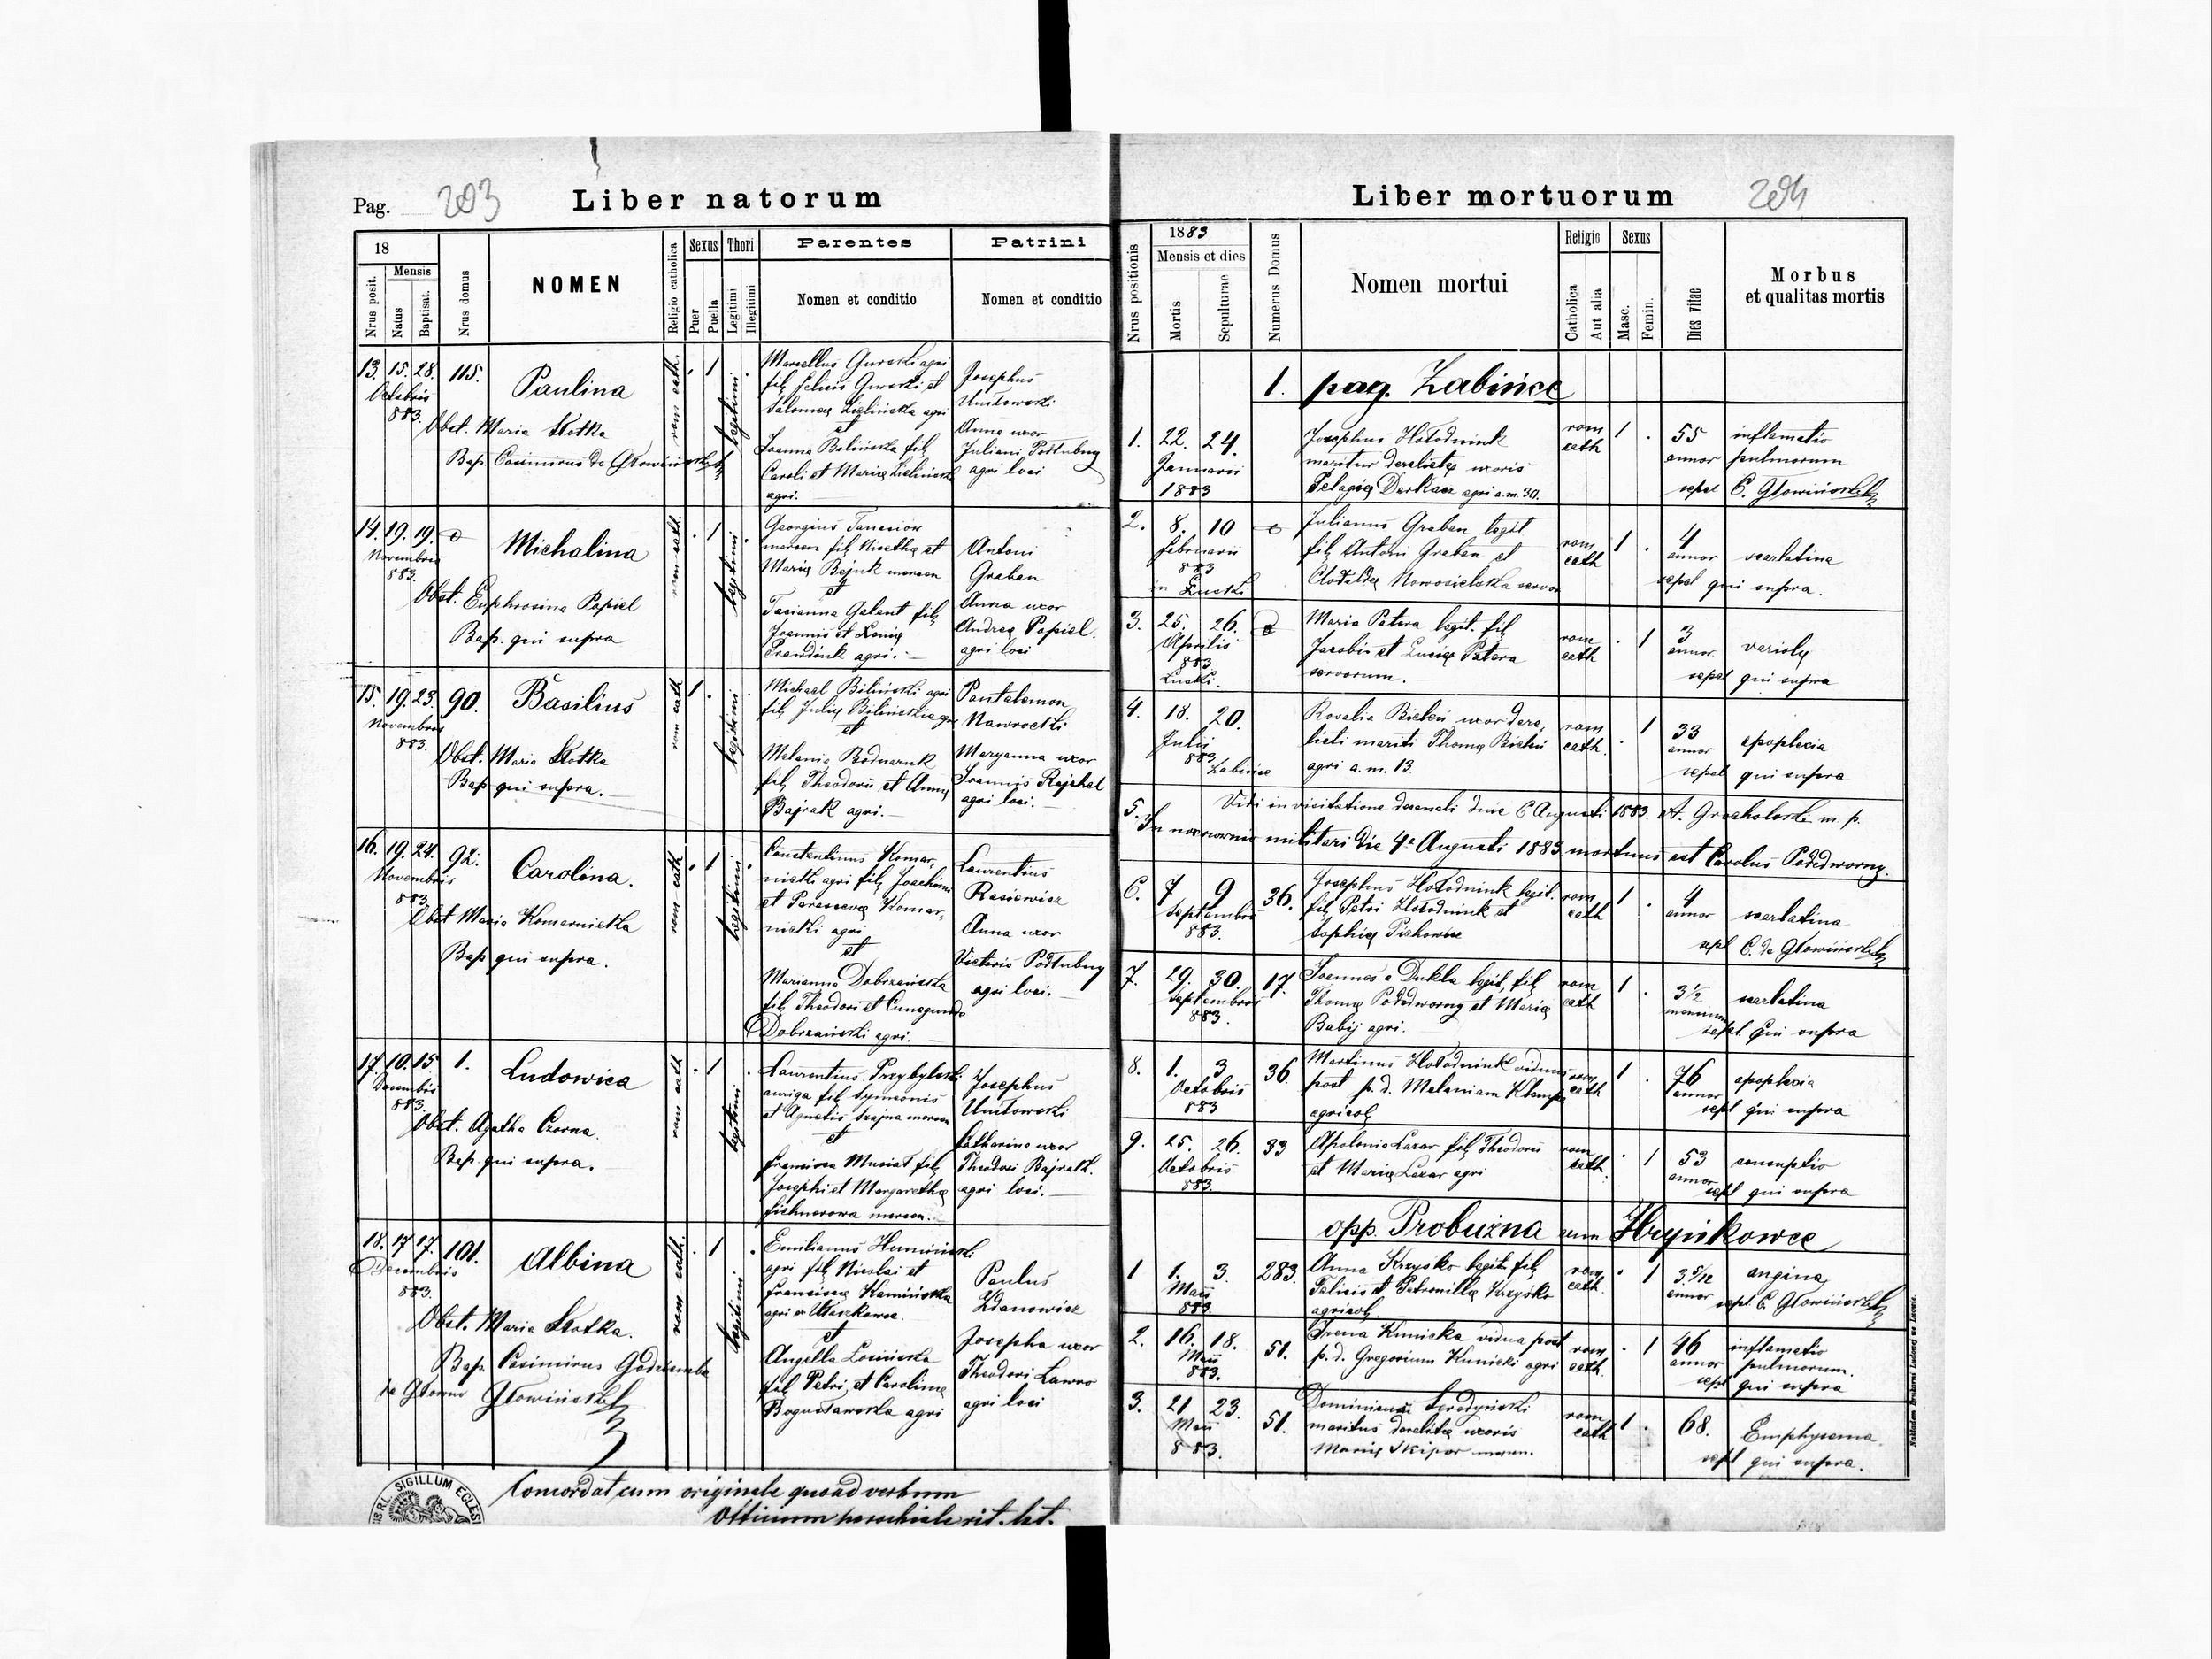 Pag. 203 Liber natorum
18
Nrus posit.
Mensis
Natus
Baptisat.
Nrus domus
NOMEN
Religio catholica
Sexus
Puer
Puella
Thori
Legitimi
Illegitimi
Parentes
Nomen et conditio
Patrini
Nomen et conditio
13. 15. 28. 115. Paulina
Octobris
883.
Obst. Maria Slotka
Bap. Casimirus de Głowiński
rom cath. 1 legitimi
Marcellus Gurski agri
fil. Felicis Gurski et
Salomea agri
et
Joanna Bilińska fil.
Caroli et Maria Zielińska
agri.
Josephus
Unitowski
Anna uxor
Juliani Podłubny
agri loci
14. 19. 19. Michalina
Novembris
883.
Obst. Euphrosina Popiel
Bap. qui supra
rom cath. 1 legitimi
Georgius
fil. et
Maria Bejuk
et
Tacianna Galant fil.
Joannis et
agri.
Antoni
Graban
Anna uxor
Andrea Popiel.
agri loci
15. 19. 23. 90. Basilius
Novembris
883.
Obst. Maria Slotka
Bap. qui supra.
rom cath 1 legitimi
Michael Biliński agri
fil. Bilińskie
et
Melania Bodnaruk
fil. Theodori et Anna
Bajrak agri.
Pantalemon
Nawrocki
Maryanna uxor
Joannis Rejchel
agri loci.
16. 19. 24. 92. Carolina.
Novembris
883.
Obst Maria Komarnicka
Bap qui supra.
rom cath 1 legitimi
Constantinus Komar,
nicki agri fil. Joachimi
et Parasceva Komar,
nicki agri
et
Marianna Dobrzańska
fil. Theodori et Cunegunda
Dobrzański agri.
Laurentius
Rasiewicz
Anna uxor
Victoris Podłubny
agri loci.
17. 10. 15 1. Ludowica
Decembris
883.
Obst. Agatha Czarna.
Bap. qui supra.
rom cath 1 legitimi
Laurentius Przybylski
auriga fil. Symeonis
et Agnetis
et
Francisca Musiał fil.
Josephi et Margaretha
Josephus
Unitowski
Catharina uxor
Theodori Bajrak.
agri loci.
18. 17 17. 101. Albina
Decembris
883.
Obst. Maria Slotka.
Bap. Casimirus Godziemba
de Głowno Głowiński
rom cath. 1 legitimi
Emilianus Humiński
agri fil. Nicolai et
Francisca Kamińska
agri
et
Angella Łosińska
fil. Petri, et Carolina
Bogusławska agri
Paulus
Zdanowicz
Josepha uxor
Theodori Ławro
agri loci
SIGILLUM ECLESI
Concordat cum originale quoad verbum
Officium parochiale rit. lat.
Liber mortuorum 204
1883
Nrus positionis
Mensis et dies
Mortis
Sepulturae
Numerus Domus
Nomen mortui
Religio
Catholica
Aut alia
Sexus
Masc.
Femin.
Dies vitae
Morbus
et qualitas mortis
1. pag. Żabińce
1. 22. 24. Josephus Hołodniuk rom 1 55 inflamatio
Januarii maritus derelicta uxoris cath annor pulmorum
1883 Pelagia Derkacz agri a.m. 30. sepel C. Głowiński
2. 8. 10 Julianus Graban legit
Februarii fil. Antoni Graban et rom 1 4 scarlatina
883 Clotilda Nowosielska cath annor
sepel qui supra.
3. 25. 26. Maria Patera legit. fil. rom 1 3 variola
Aprilis Jacobi et Lucia Patera cath annor
883 servorum. sepel qui supra
4. 18. 20. Rosalia uxor dere, rom 1 33 apoplexia
Julii licti mariti Thoma cath. annor
883 Żabińce agri a. m. 13. sepel qui supra
Vidi in visitatione decanali die 6 Augusti 1883. A. Grocholski m. p.
5. In militari die 4a Augusti 1883 mortuus est Carolus Podedworny.
6. 7 9 36. Josephus Hołodniuk legit. rom 1 4 scarlatina
Septembris fil. Petri Hołodniuk et cath annor
883. Sophia sepel C. de Głowiński
7. 29. 30. 17. Joannes a Dukla legit. fil. rom 1 3½ scarlatina
Septembris Thoma Podedworny et Maria cath mensium
883. Babij agri. sepel. qui supra
8. 1. 3 36. Martinus Hołodniuk viduus rom 1 76 apoplexia
Octobris post p. d. Melaniam cath annor
883 agricola sepel qui supra
9. 25. 26. 33 Apolonia Lazar fil. Theodori rom 1 53 consuptio
Octobris et Maria Lazar agri cath annor
883. sepel qui supra
opp. Probużna cum Hryńkowce
1 1. 3. 283. Anna Krzysko legit. fil. rom 1 3.5/12 angina,
Maii Felicis et Petronilla Krzyśko cath. annor
883. agricola sepel. C. Głowiński
2. 16. 18. 51. Irena Kunicka vidua post rom 1 46 inflamatio
Maii p. d. Gregorium Kunicki agri cath. annor pulmorum.
883. sepel qui supra
3. 21 23. 51. Dominicus rom 1 68. Emphysema
Maii maritus derelicta uxoris cath
883. Maria Skipor sepel qui supra.